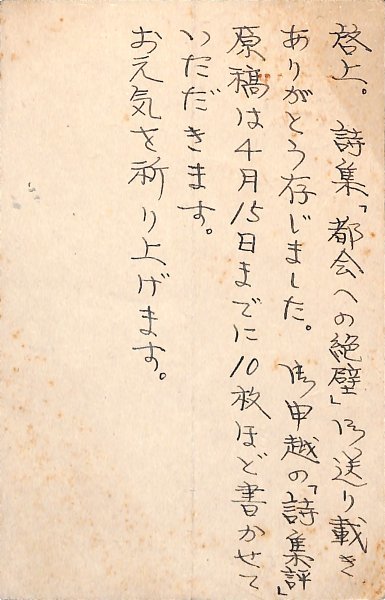 啓上。　詩集「都会への絶壁」御送り載き
ありがとう存じました。　御申越の「詩集評」
原稿は4月15日までに10枚ほど書かせて
いただきます。
お元気を祈り上げます。